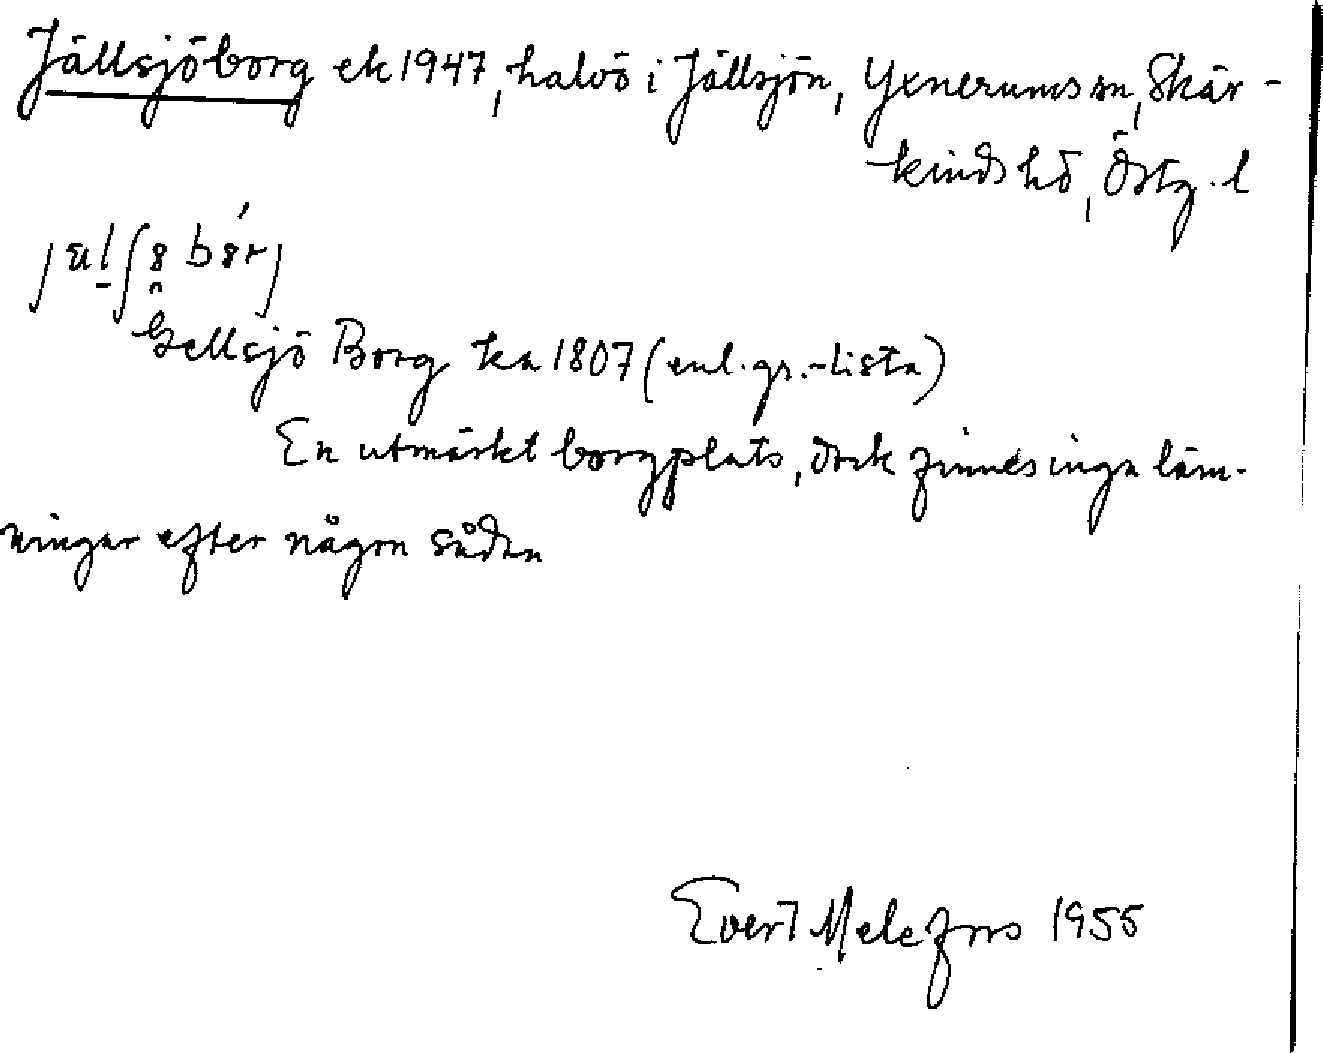 Jällsjöborg ek 1947, halvö i Jällsjön, Yxnerums sn, Skär-
kinds hd, Östg. l
Gellsjö Borg ka 1807 (enl. gr.-lista)
En utmärkt borgplats, dock finnes inga läm-
ningar efter någon sådan
Evert Melefors 1955